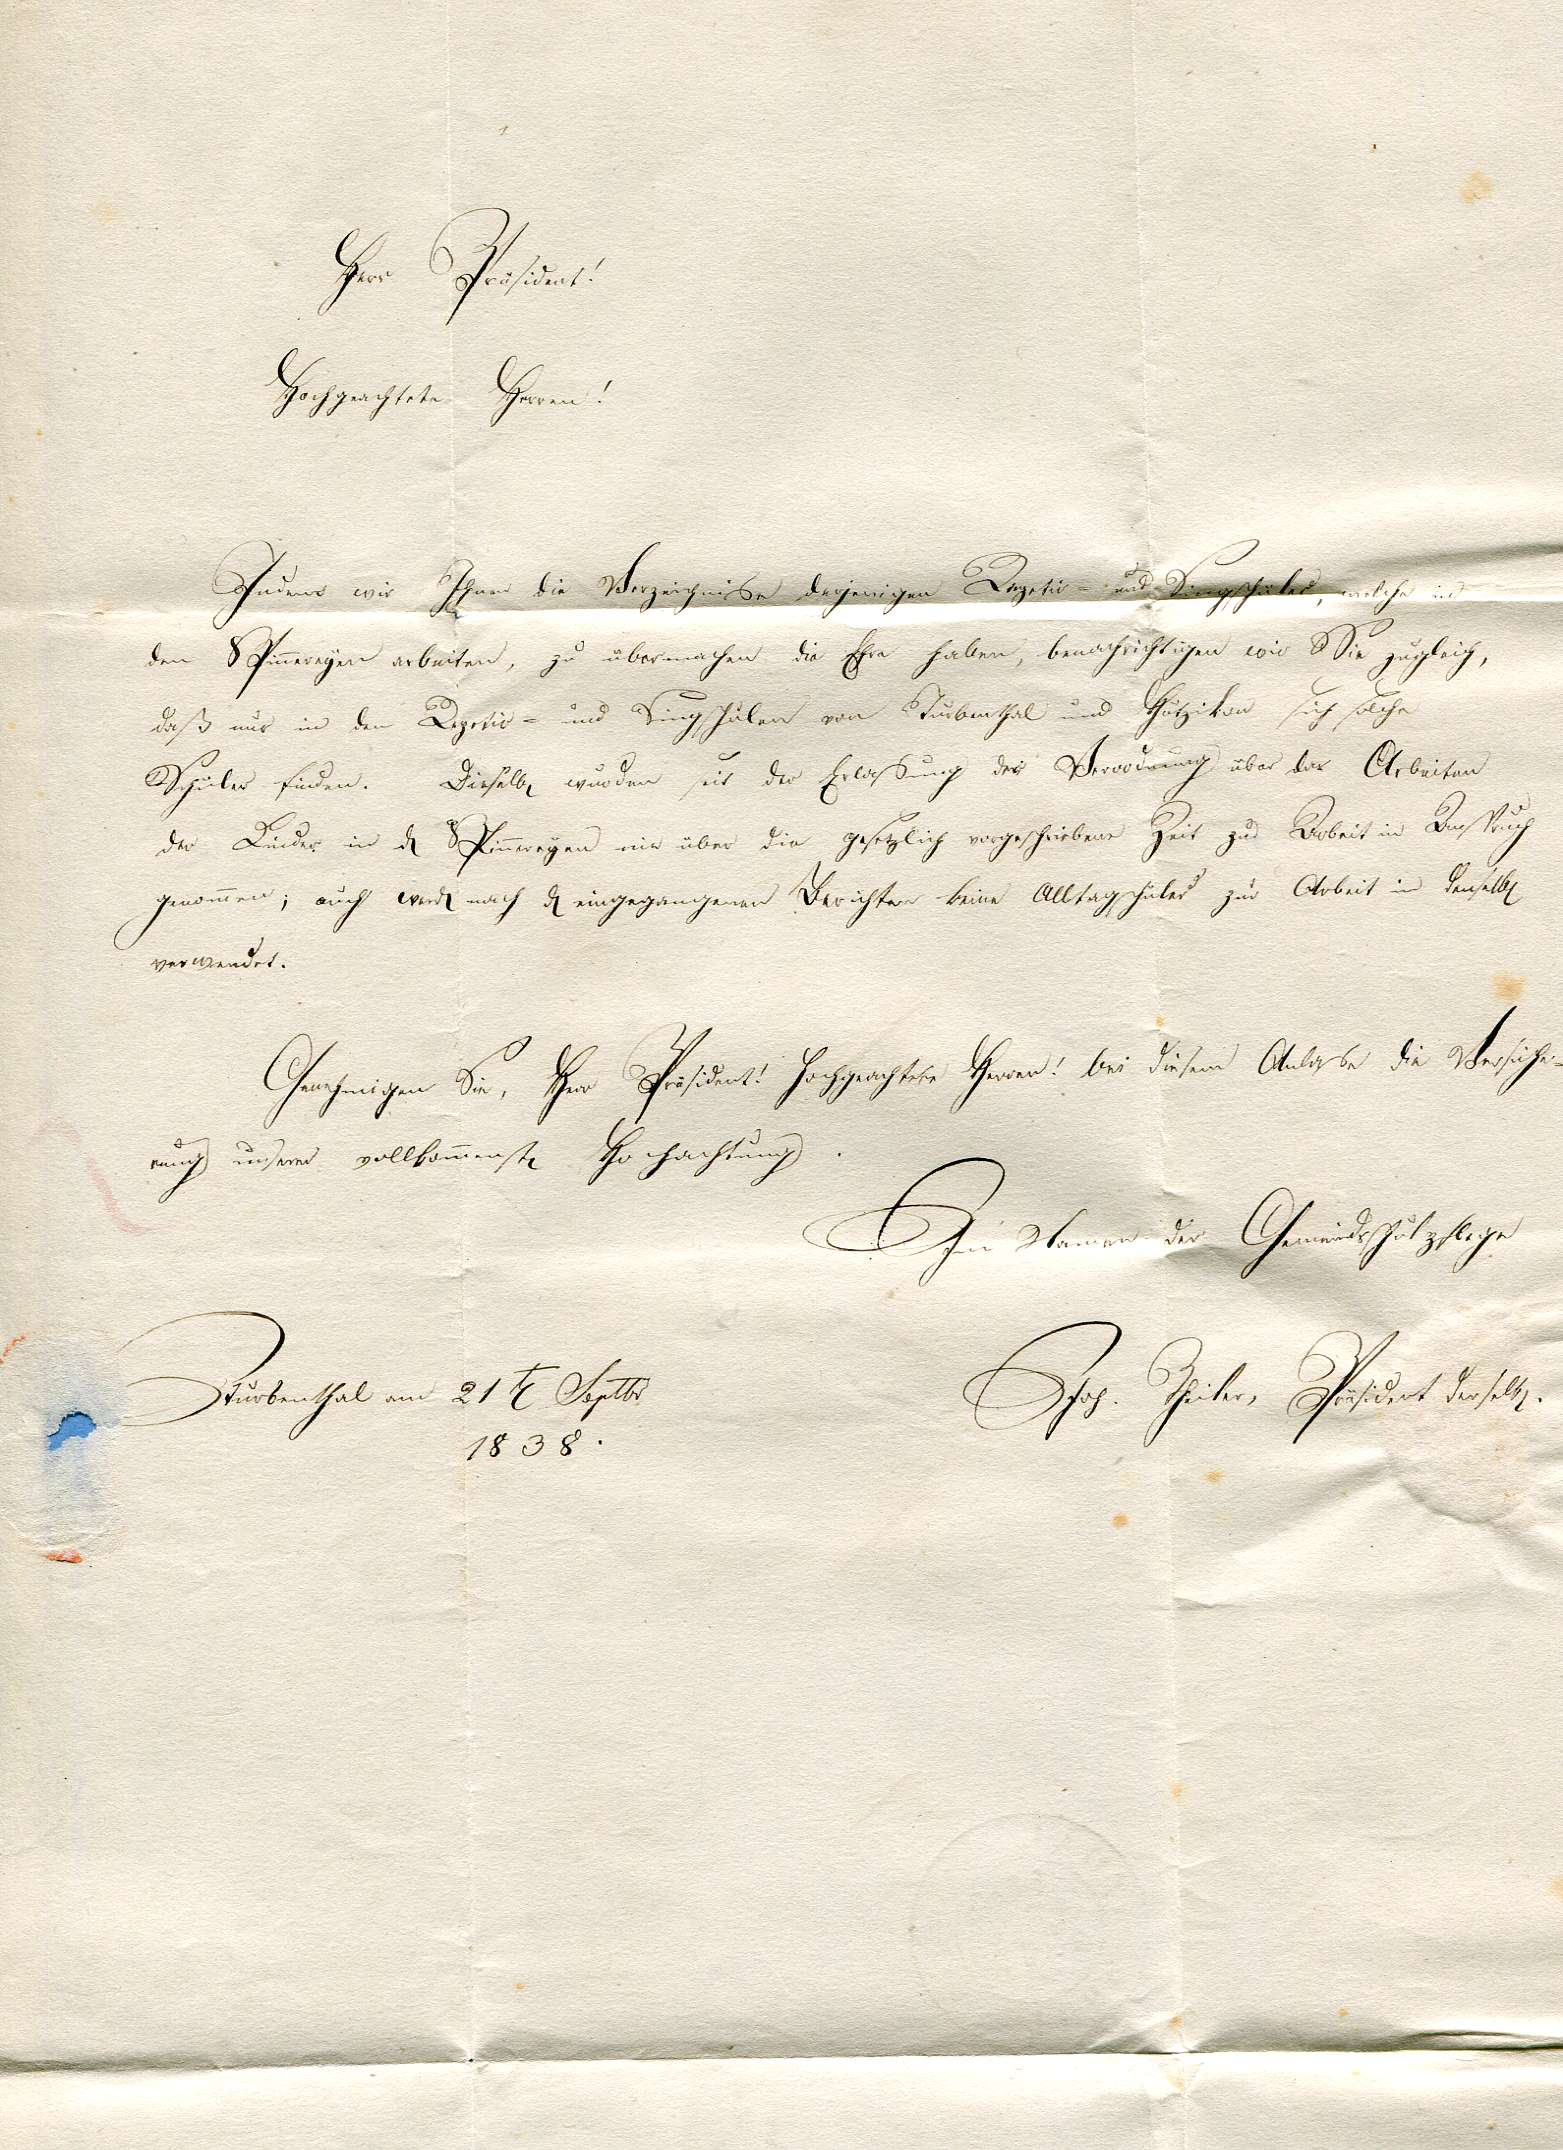 Herr Präsident!
Hochgeachtete Herren!
Indem wir Ihnen die Verzeichniße derjenigen Repetir- und Singschüler, welche in
den Spinnereyen arbeiten, zu übermachen die Ehre haben, benachrichtigen wir Sie zugleich,
daß nur in den Repetir- und Singschulen von Turbenthal und Hutzikon sich solche
Schüler finden. Dieselbn wurden seit der Erlaßung der Verordnung über das Arbeiten
der Kinder in dn Spinnereyen nie über die gesetzlich vorgeschriebene Zeit zur Arbeit in Anspruch
genommen; auch werdn nach dn eingegangenen Berichten keine Alltagschüler zur Arbeit in denselbn
verwendet.
Genehmigen Sie, Herr Präsident! Hochgeachtete Herren! bei diesem Anlaße die Versiche-
rung unserer vollkommenstn Hochachtung.
Im Namen der Gemeindsschulpflege
Turbenthal am 21tn Septbr
Joh. Theiler, Präsident derselbn.
1838.